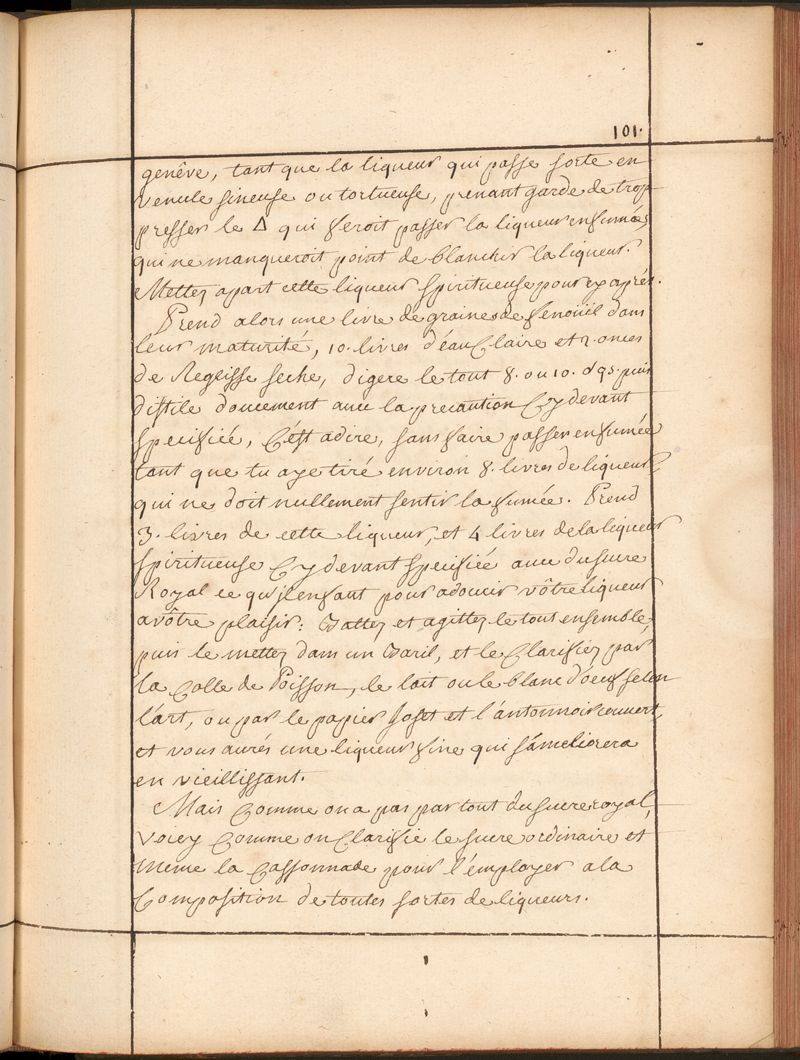 101.
genêve, tant que la liqueur qui passe sorte en
venule sineuse ou tortueuse, prenant garde de trop
presser le Δ qui feroit passer la liqueur enfumée,
qui ne manqueroit point de blanchir la liqueur.
Mettez apart cette liqueur spiritueuse pour cy aprés.
Prend alors une livre de graines de fenoüil dans
leur maturité, 10. livres d'éau Claire et 2. onces
de Reglisse seche, digere le tout 8. ou 10. puis
distile doucement avec la precaution Cy devant
specifiée, C'ést adire, sans faire passer enfumée
tant que tu aye tiré environ 8. livres de liqueur,
qui ne doit nullement sentir la fumée. Prend
3. livres de cette liqueur, et 4 livres de la liqueur
spiritueuse Cy devant specifiée avec du sucre
Royal ce qu'jl en faut pour adoucir vôtre liqueur
a vôtre plaisir: Battez et agittez le tout ensemble,
puis le mettez dans un Baril, et le Clarifiez par
la Colle de Poisson, le lait ou le blanc d'oeuf selon
l'art, ou par le papier Josef et l'ántonnoir couvert,
et vous aurés une liqueur fine qui s'ámeliorera
en vieillissant.
Mais Comme on a pas par tout du sucre royal,
Voicy Comme on Clarifie le sucre ordinaire et
meme la Cassonnade pour l'émployer a la
Composition de toutes sortes de liqueurs.